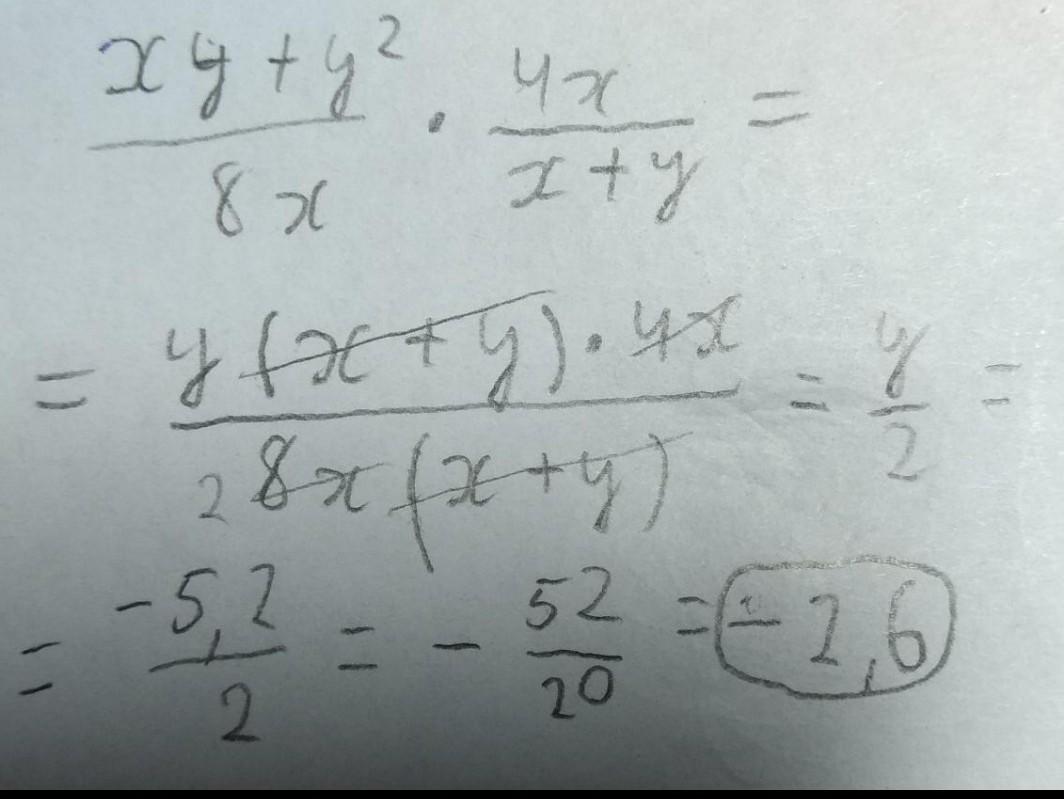 (xy + y²)/(8x) · (4x)/(x + y) =
= (y(x + y) · 4x)/(2 8x(x + y)) = y/2 =
= (-5,2)/2 = - 52/20 = - 2,6